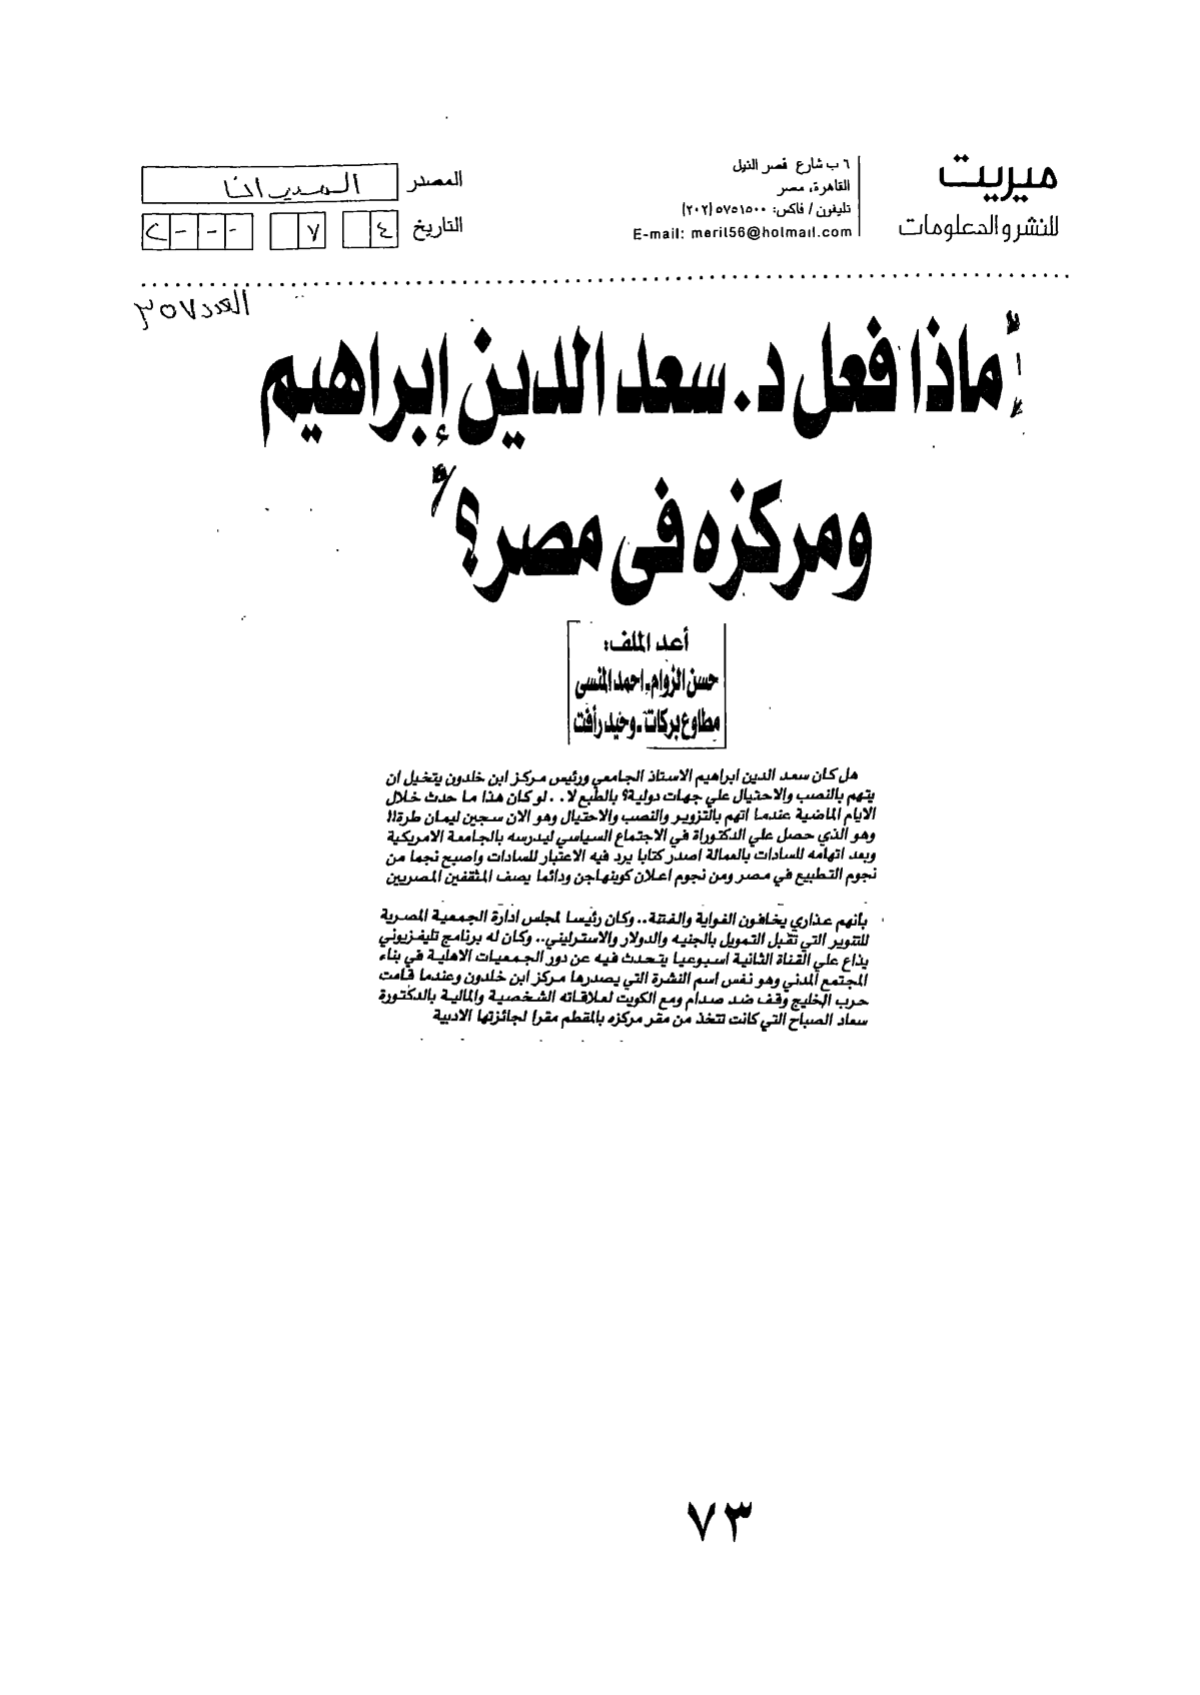 ميريت
للنشر والمعلومات
٦ ب شارع قصر النيل
القاهرة، مصر
تليفون / فاكس: ٥٧٥١٥٠٠ (٢٠٢)
E-mail: merit56@hotmail.com
المصدر
التاريخ ٤ ٧ ٢٠٠٠
العدد ٣٥٧
ماذا فعل د. سعد الدين إبراهيم
ومركزه فى مصر؟
أعد الملف:
حسن الزوام ـ احمد المنسى
مطاوع بركات ـ وحيد رأفت
هل كان سعد الدين ابراهيم الاستاذ الجامعي ورئيس مركز ابن خلدون يتخيل ان
يتهم بالنصب والاحتيال علي جهات دولية؟ بالطبع لا.. لو كان هذا ما حدث خلال
الايام الماضية عندما اتهم بالتزوير والنصب والاحتيال وهو الان سجين ليمان طرة!!
وهو الذي حصل علي الدكتوراة في الاجتماع السياسي ليدرسه بالجامعة الامريكية
وبعد اتهامه للسادات بالعمالة اصدر كتابا يرد فيه الاعتبار للسادات واصبح نجما من
نجوم التطبيع في مصر ومن نجوم اعلان كوبنهاجن ودائما يصف المثقفين المصريين
بأنهم عذاري يخافون الغواية والفتنة.. وكان رئيسا لمجلس ادارة الجمعية المصرية
للتنوير التي تقبل التمويل بالجنيه والدولار والاسترليني.. وكان له برنامج تليفزيوني
يذاع علي القناة الثانية اسبوعيا يتحدث فيه عن دور الجمعيات الاهلية في بناء
المجتمع المدني وهو نفس اسم النشرة التي يصدرها مركز ابن خلدون وعندما قامت
حرب الخليج وقف ضد صدام ومع الكويت لعلاقاته الشخصية والمالية بالدكتورة
سعاد الصباح التي كانت تتخذ من مقر مركزه بالمقطم مقرا لجائزتها الادبية
٧٣